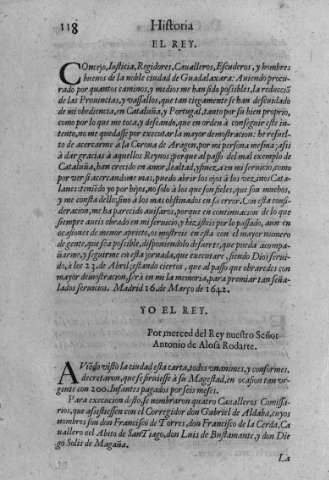 118 Historia
EL REY.
Concejo, Iusticia, Regidores, Caualleros, Escuderos, y hombres
buenos de la noble ciudad de Guadalaxara: Auiendo procu-
rado por quantos caminos, y medios me han sido possibles, la reducciõ
de las Prouincias, y vassallos, que tan ciegamente se han descuidado
de mi obediencia, en Cataluña, y Portugal, tanto por su bien propio,
como por lo que me toca, y desseando, que en orden à conseguir este in-
tento, no me quedasse por executar la mayor demostracion: he resuel-
to de acercarme à la Corona de Aragon, por mi persona mesma; assi
à dar gracias à aquellos Reynos porque al passo del mal exemplo de
Cataluña, han crecido en amor lealtad, y fineza en mi seruicio, como
por ver si acercandome mas, puedo abrir los ojos à los ciegos Cata-
lanes tenidos yo por hijos, no solo à los que son fieles, que son muchos,
y me consta dello, sino à los mas obstinados en su error. Con esta consi-
deracion, me ha parecido auisaros, porque en continuacion de lo que
siempre aueis obrado en mi seruicio, y hazeis por lo passado, aun en
ocasiones de menor aprieto, os mostreis en esta con el mayor numero
de gente, que sea possible, disponiendolo de suerte, que pueda acompa-
ñarme, y seguirme en esta jornada, que executare, siendo Dios serui-
do, à los 23. de Abril; estando ciertos, que al passo que obraredes con
mayor demostracion, serà en mi la memoria, para premiar tan seña-
lados seruicios. Madrid 16. de Março de 1642.
YO EL REY.
Por merced del Rey nuestro Señor
Antonio de Alosa Rodarte.
AViẽdo visto la ciudad esta carta, todos vnanimes, y conformes,
decretaron, que se siruiesse à su Magestad, en ocasion tan vr-
gente con 200. Infantes pagados por seis meses.
Para execucion desto, se nombraron quatro Caualleros Comissa-
rios, que assistiessen con el Corregidor don Gabriel de Aldaba, cuyos
nombres son don Francisco de Torres, don Francisco de la Cerda, Ca
uallero del Abito de SanTiago, don Luis de Bustamante, y don Die
go Solis de Magaña.
La